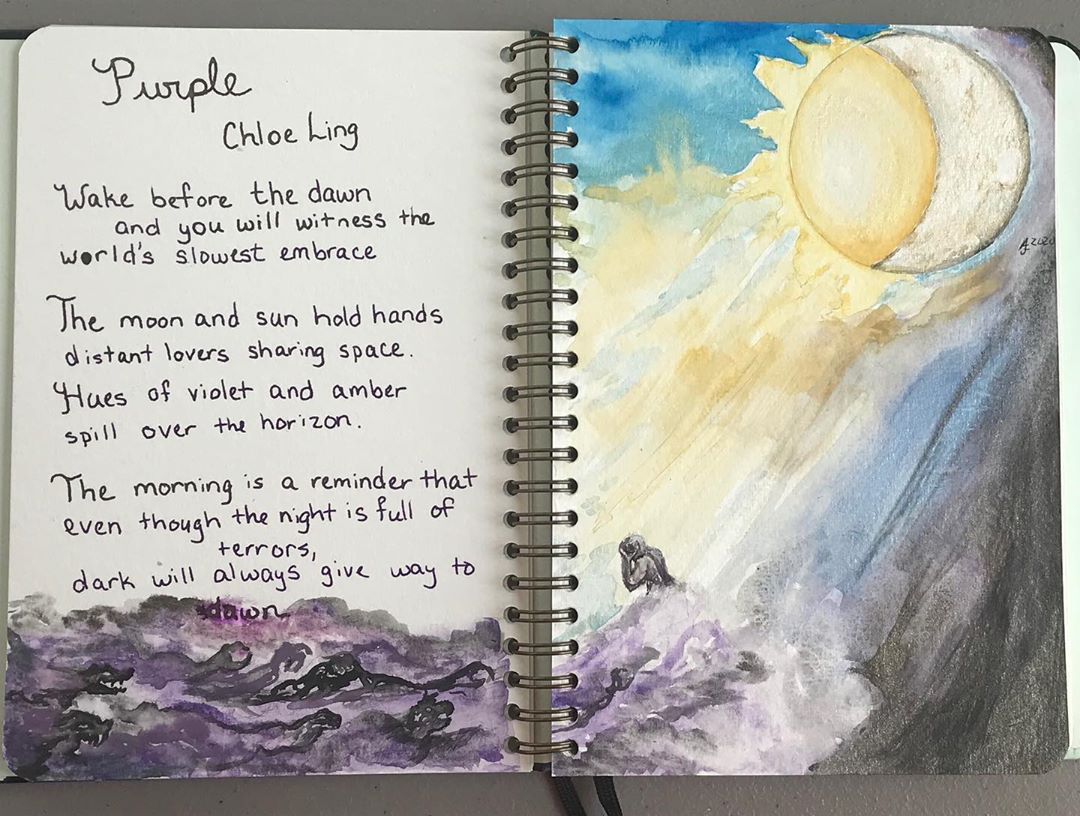 Purple
Chloe Ling
Wake before the dawn
and you will witness the
world's slowest embrace
The moon and sun hold hands
distant lovers sharing space.
Hues of violet and amber
spill over the horizon.
The morning is a reminder that
even though the night is full of
terrors,
dark will always give way to
dawn